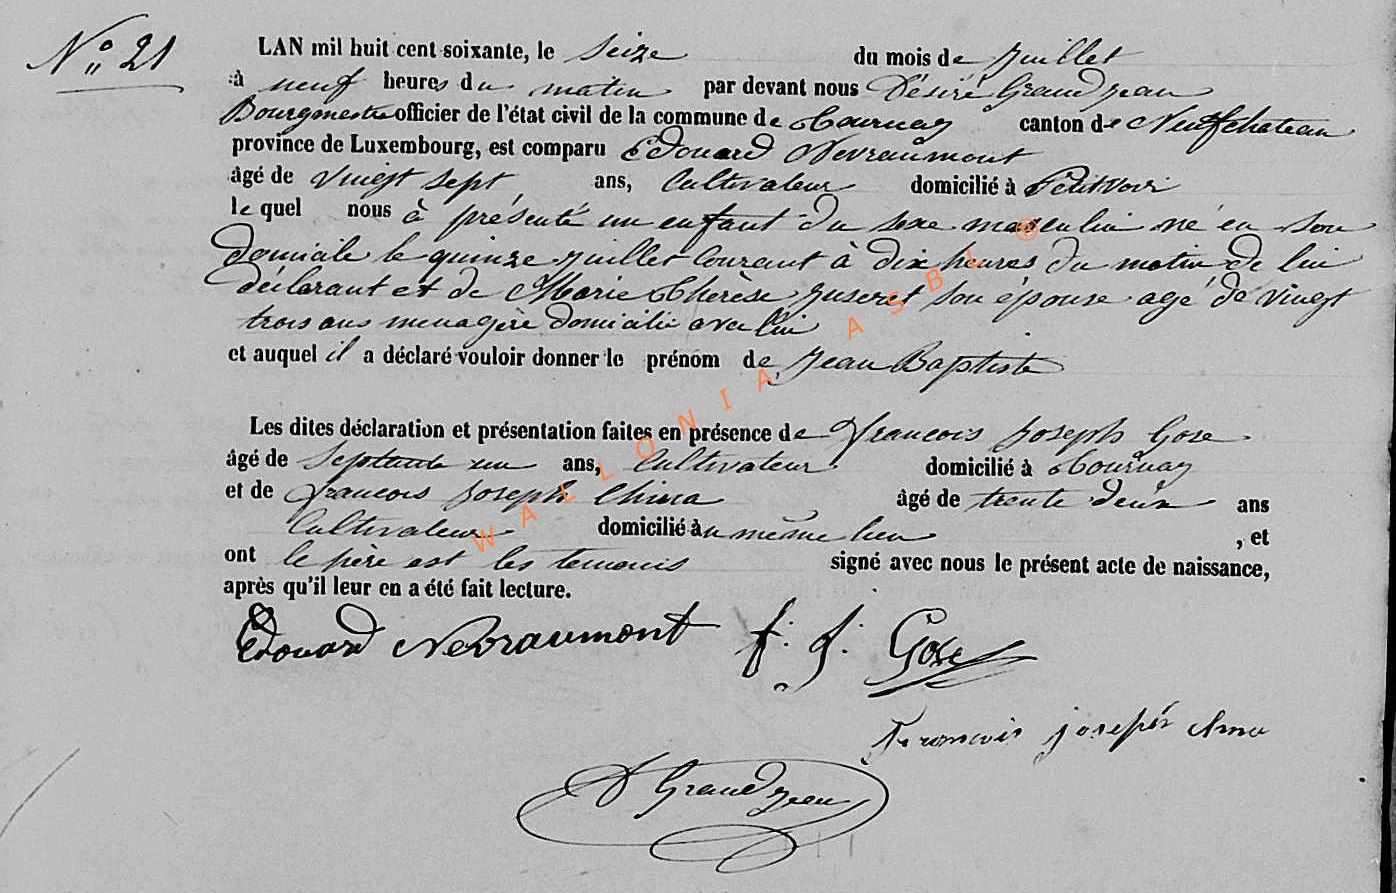 N° 21
LAN mil huit cent soixante, le Seize du mois de Juillet
à neuf heures du matin par devant nous Désiré Grandjean
Bourgmestre officier de l'état civil de la commune de Tournay canton de Neufchateau
province de Luxembourg, est comparu Edouard Nevraumont
âgé de vingt sept ans, Cultivateur domicilié à Petitvoir
le quel nous à présenté un enfant du sexe masculin né en son
domicile le quinze Juillet Courant à dix heures du matin de lui
déclarant et de Marie Thérèse Juseret son épouse agé de vingt
trois ans menagère domicilié avec lui
et auquel il a déclaré vouloir donner le prénom de Jean Baptiste
Les dites déclaration et présentation faites en présence de Francois Joseph Gose
âgé de Septante un ans, Cultivateur domicilié à Tournay
et de francois Joseph China âgé de trente deux ans
Cultivateur domicilié au même lieu , et
ont le père est les temouis signé avec nous le présent acte de naissance,
après qu'il leur en a été fait lecture.
Edouard Nevraumont f. j. Gose
Francois joseph
D Grandjean
WALLONIA ASBL ®